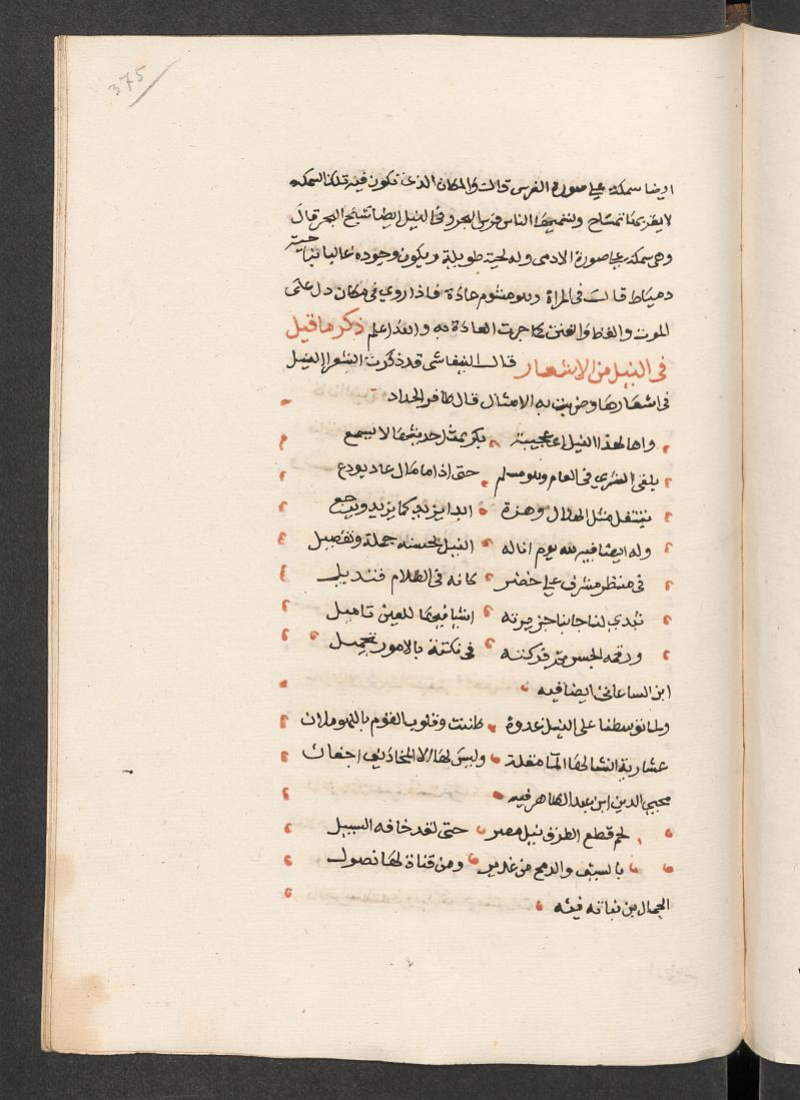 375
ايضا سمكة على صورة الفرس قالت والمكان الذى تكون فيه تلك السمكة
لا يقربها تمساح وتسميها الناس فرس البحر وفى النيل ايضا شيخ البحر قال
وهى سمكة على صورة الادمى وله لحية طويلة ويكون وجوده غالبا بناحية
دمياط قالت فى المراة وهو مشئوم عادة فاذا روى فى مكان دل على
الموت والقحط والفتن كما جرت العادة به والله اعلم ذكر ما قيل
فى النيل من الاشعار قال التيفاشى قد ذكرت الشعرا النيل
فى اشعارها وضربت به الامثال قال ظافر الحداد
واها لهذا النيل اى عجيبة بكر بمثل حديثها لا يسمع
يلقى الثرى فى العام وهو مسلم حتى اذا ما مال عاد يودع
ينتقل مثل الهلال وهزة ابدا يزيد كما يزيد ويرجع
وله ايضا فيه لله يوم اناله النيل بحسنه جملة وتفصيل
فى منظر مشرف على خضر كانه فى الظلام قنديل
تبدى لنا جانبا جزيرته اشيا فيها للعين تاميل
ابن الساعاتى ايضا فيه
ولما توسطنا على النيل غدوة ظننت وقلوب القوم باللهو ملان
عشارية انشالها الما مقلة وليس لها الا المخاديف اجفان
محيى الدين ابن عبد الظاهر فيه
لحم قطع الطرق نيل مصر حتى لقد خافه السبيل
بالسيف والرمح من غدير ومن قناة لها نصول
الجمال بن نباته فيه